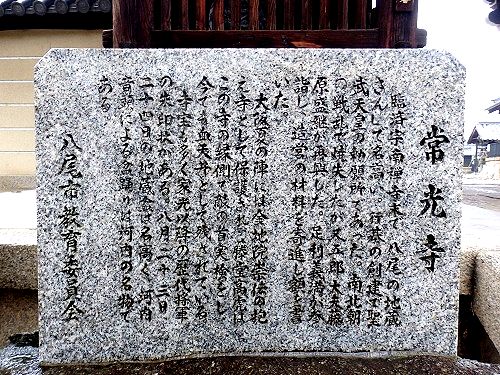 常光寺
臨済宗南禅寺末で、八尾の地蔵
さんとして名高い。行基の創建で聖
武天皇の勅願所であった。南北朝
の戦乱で焼失したが又五郎大夫藤
原盛継が再興した。足利義満が参
詣し、造営の材料を寄進し額を書
いた。
大阪夏の陣には金地院崇伝の抱
え寺として
この寺の縁側で敵の首実検をし
今でも血天井として残されている。
寺宝も多く家光以降の歴代将軍
の朱印状がある。八月二十三日
二十四日の地蔵盆は名高く、河内
音頭による盆踊りは河内の名物で
ある
八尾市教育委員会